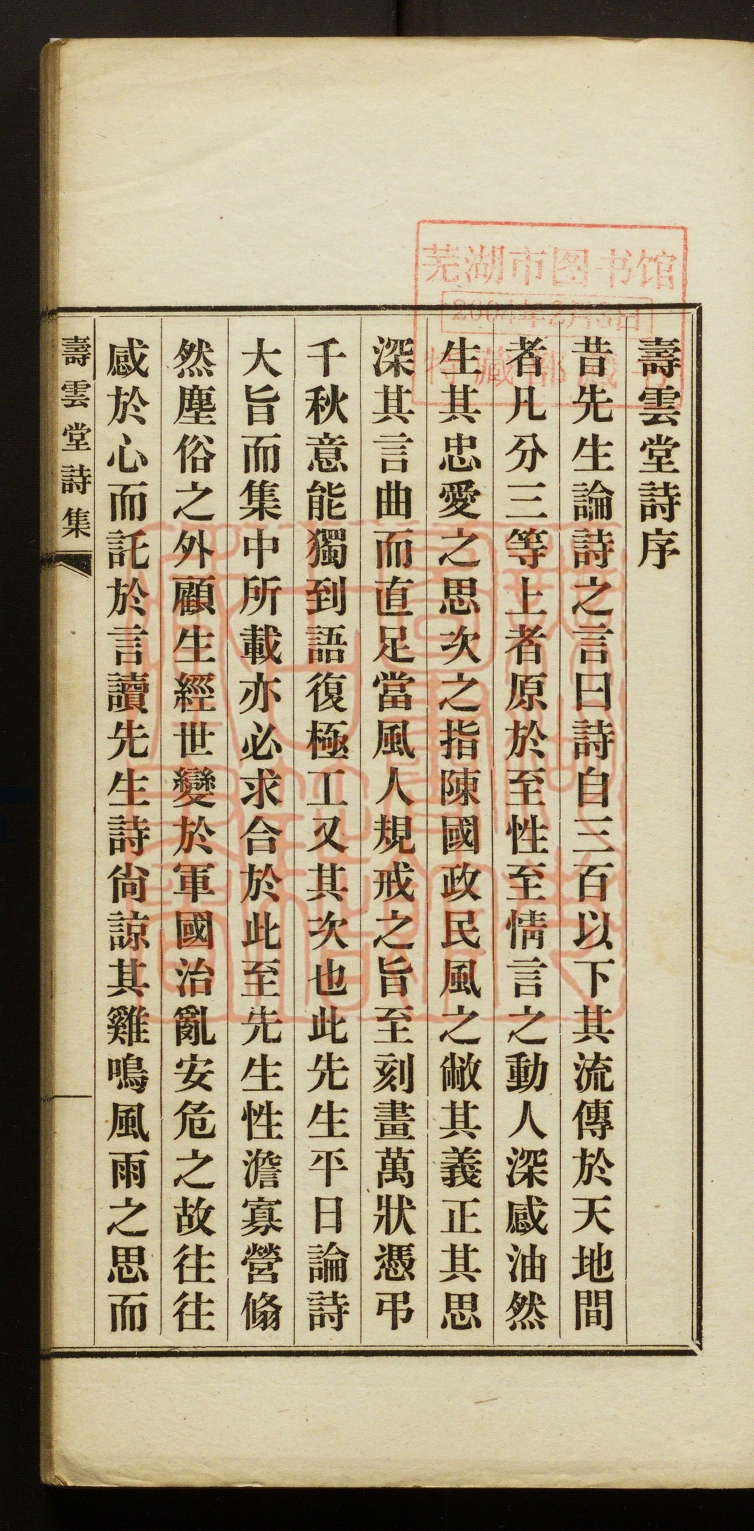 壽雲堂詩序
昔先生論詩之言曰詩自三百以下其流傳於天地間
者凡分三等上者原於至性至情言之動人深感油然
生其忠愛之思次之指陳國政民風之敝其義正其思
深其言曲而直足當風人規戒之旨至刻畫萬狀憑弔
千秋意能獨到語復極工又其次也此先生平日論詩
大旨而集中所載亦必求合於此至先生性澹寡營翛
然塵俗之外顧生經世變於軍國治亂安危之故往往
感於心而託於言讀先生詩尙諒其雞鳴風雨之思而
壽雲堂詩集
芜湖市图书馆
2004年2月3日
特藏部藏书